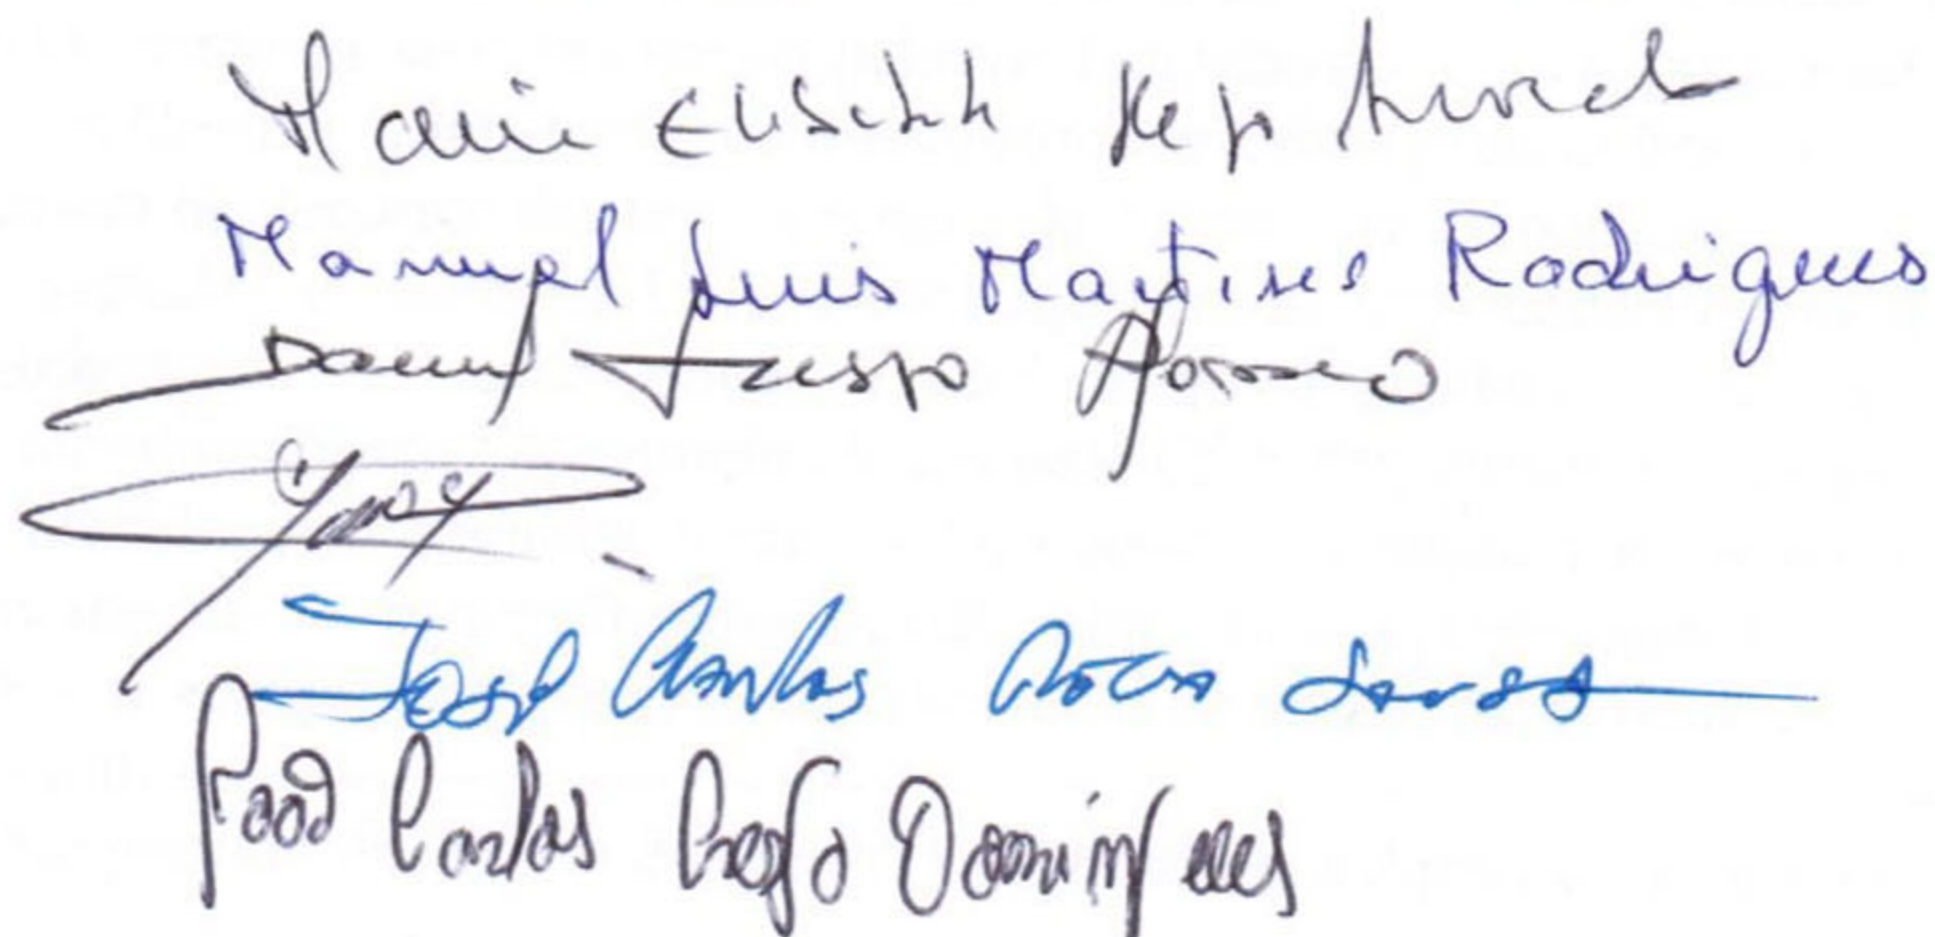 Maria Elisabeth
Manuel Luis Martins Rodrigues
Daniel Crespo Afonso
José Carlos Rocha Sousa
João Carlos Crespo Domingues